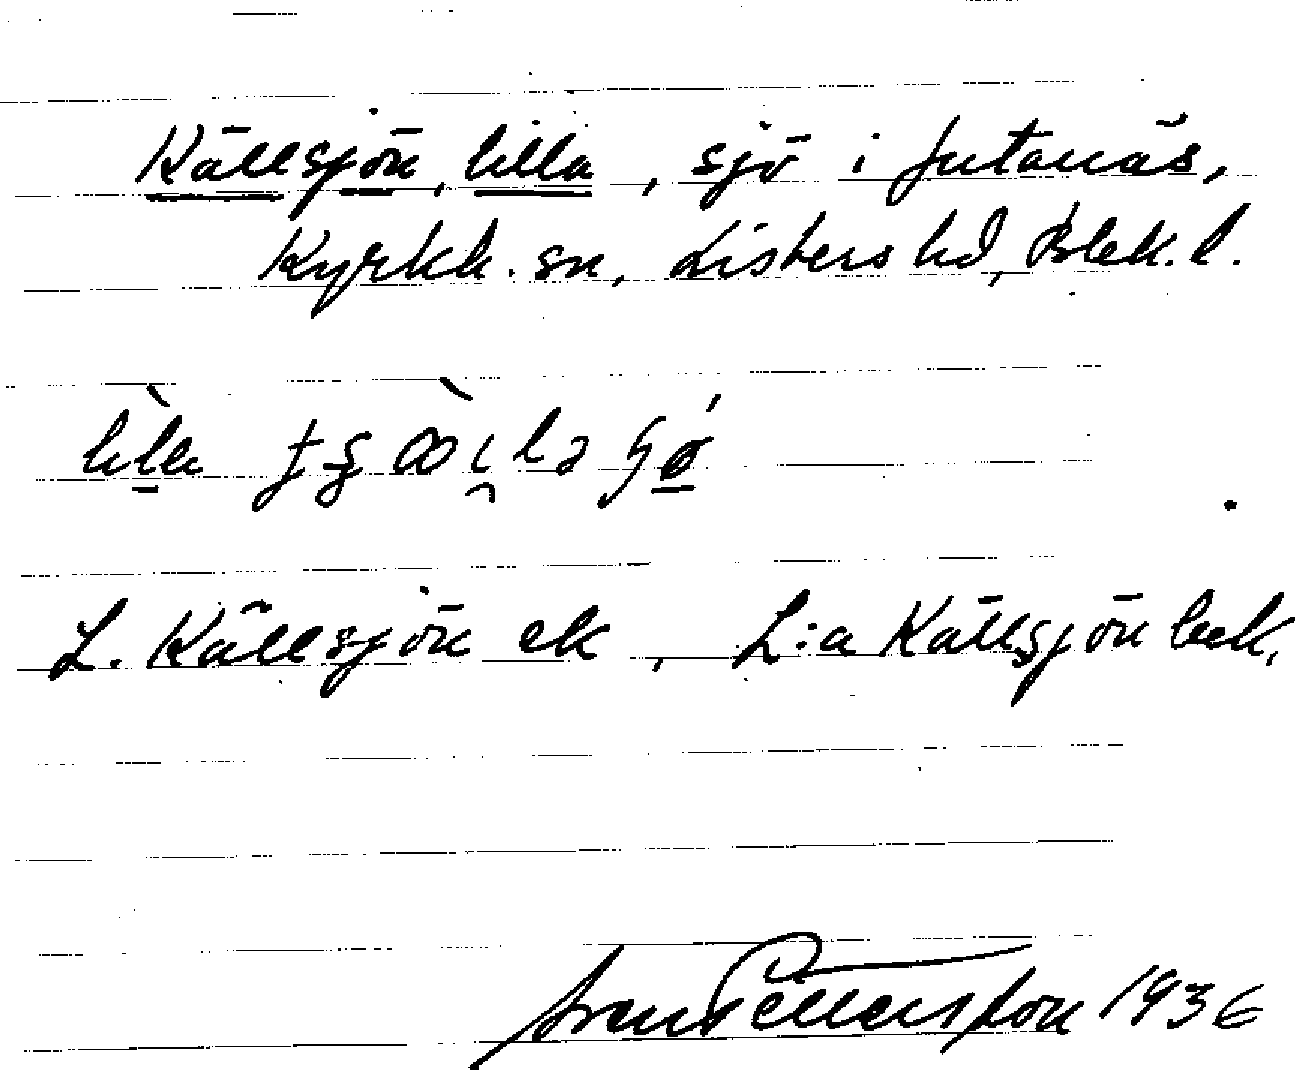 Källsjön, lilla, sjö i Jutanäs,
Kyrkh. sn, Listers hd, Blek. l.
lìla
L. Källsjön ek, L:a Källsjön bek,
Pettersson 1936